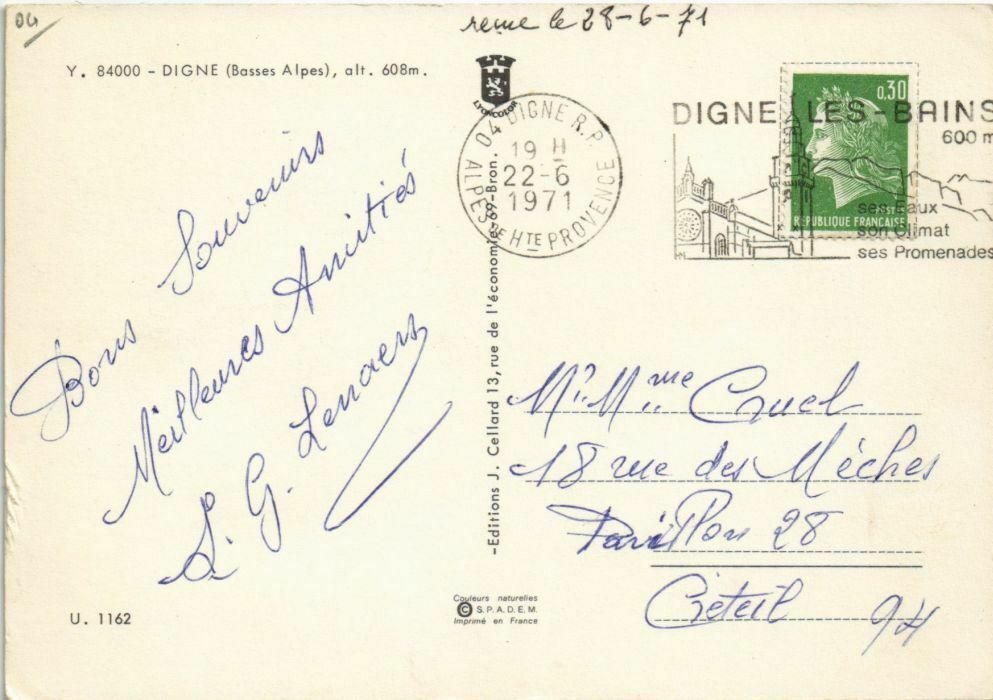 04
reçue le 28-6-71
Y. 84000 - DIGNE (Basses Alpes), alt. 608m.
LYONCOLOR
Bons Souvenirs
Meilleures Amitiés
S. G. Lenaers
U. 1162
-Editions J. Cellard 13, rue de l'économie-69-Bron.
Couleurs naturelles
© S.P.A.D.E.M.
Imprimé en France
04 DIGNE R.P.
19 H
22-6
1971
ALPES DE HTE PROVENCE
DIGNE LES-BAINS
600 m
ses Eaux
son Climat
ses Promenades
0,30
POSTES
REPUBLIQUE FRANÇAISE
Mr. Mme Cruel
18 rue des Mèches
Pavillon 28
Créteil 94